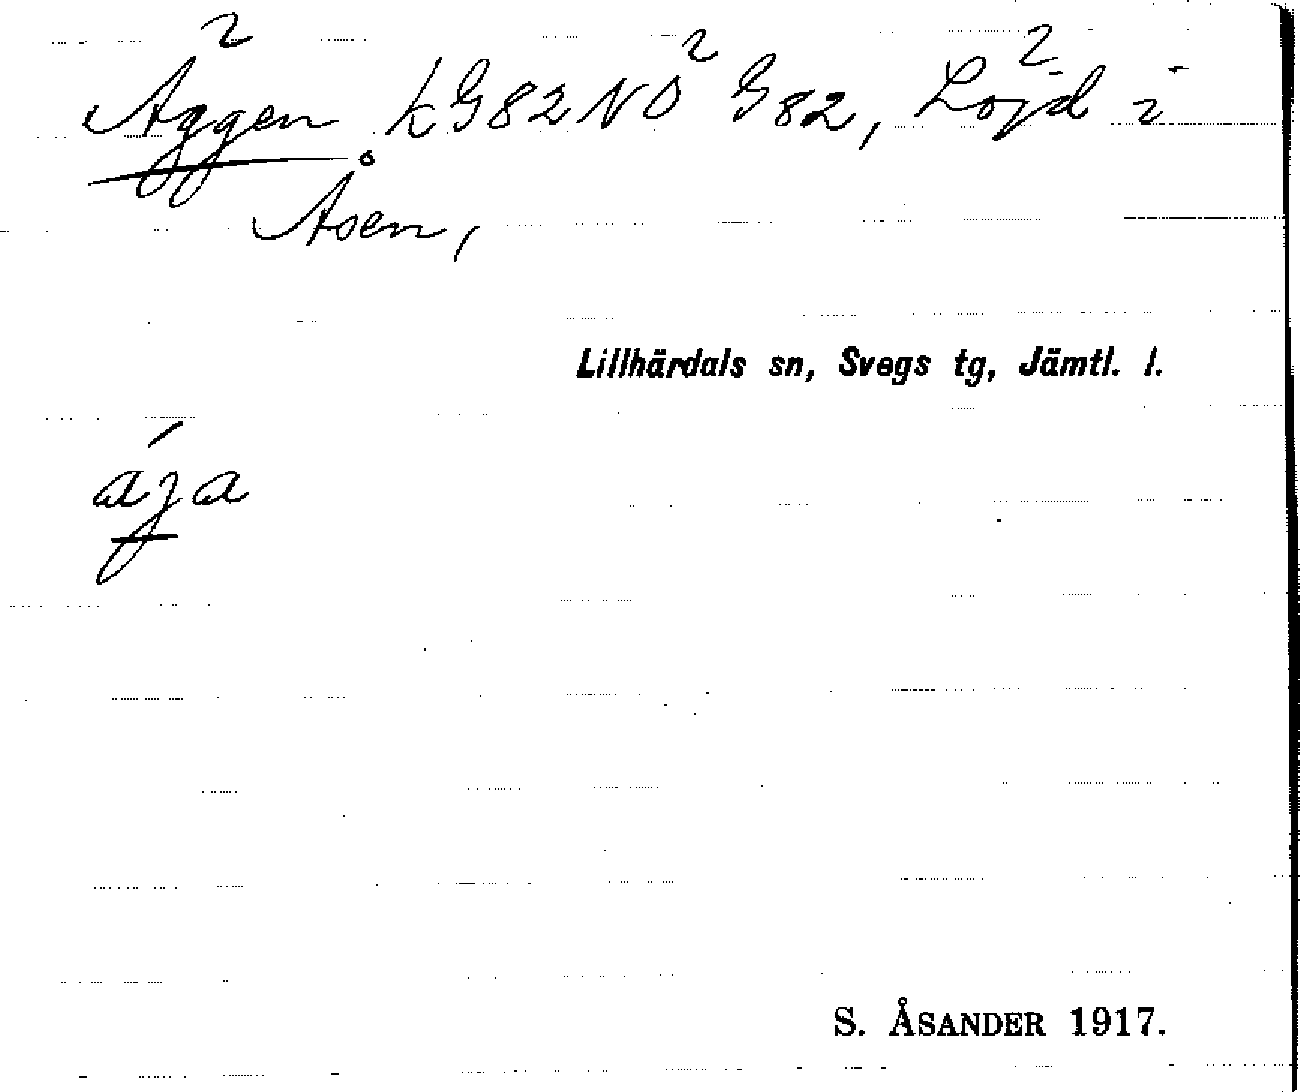 Äggen kG82NO G82, Löjd i
Åsen,
Lillhärdals sn, Svegs tg, Jämtl. l.
S. ÅSANDER 1917.